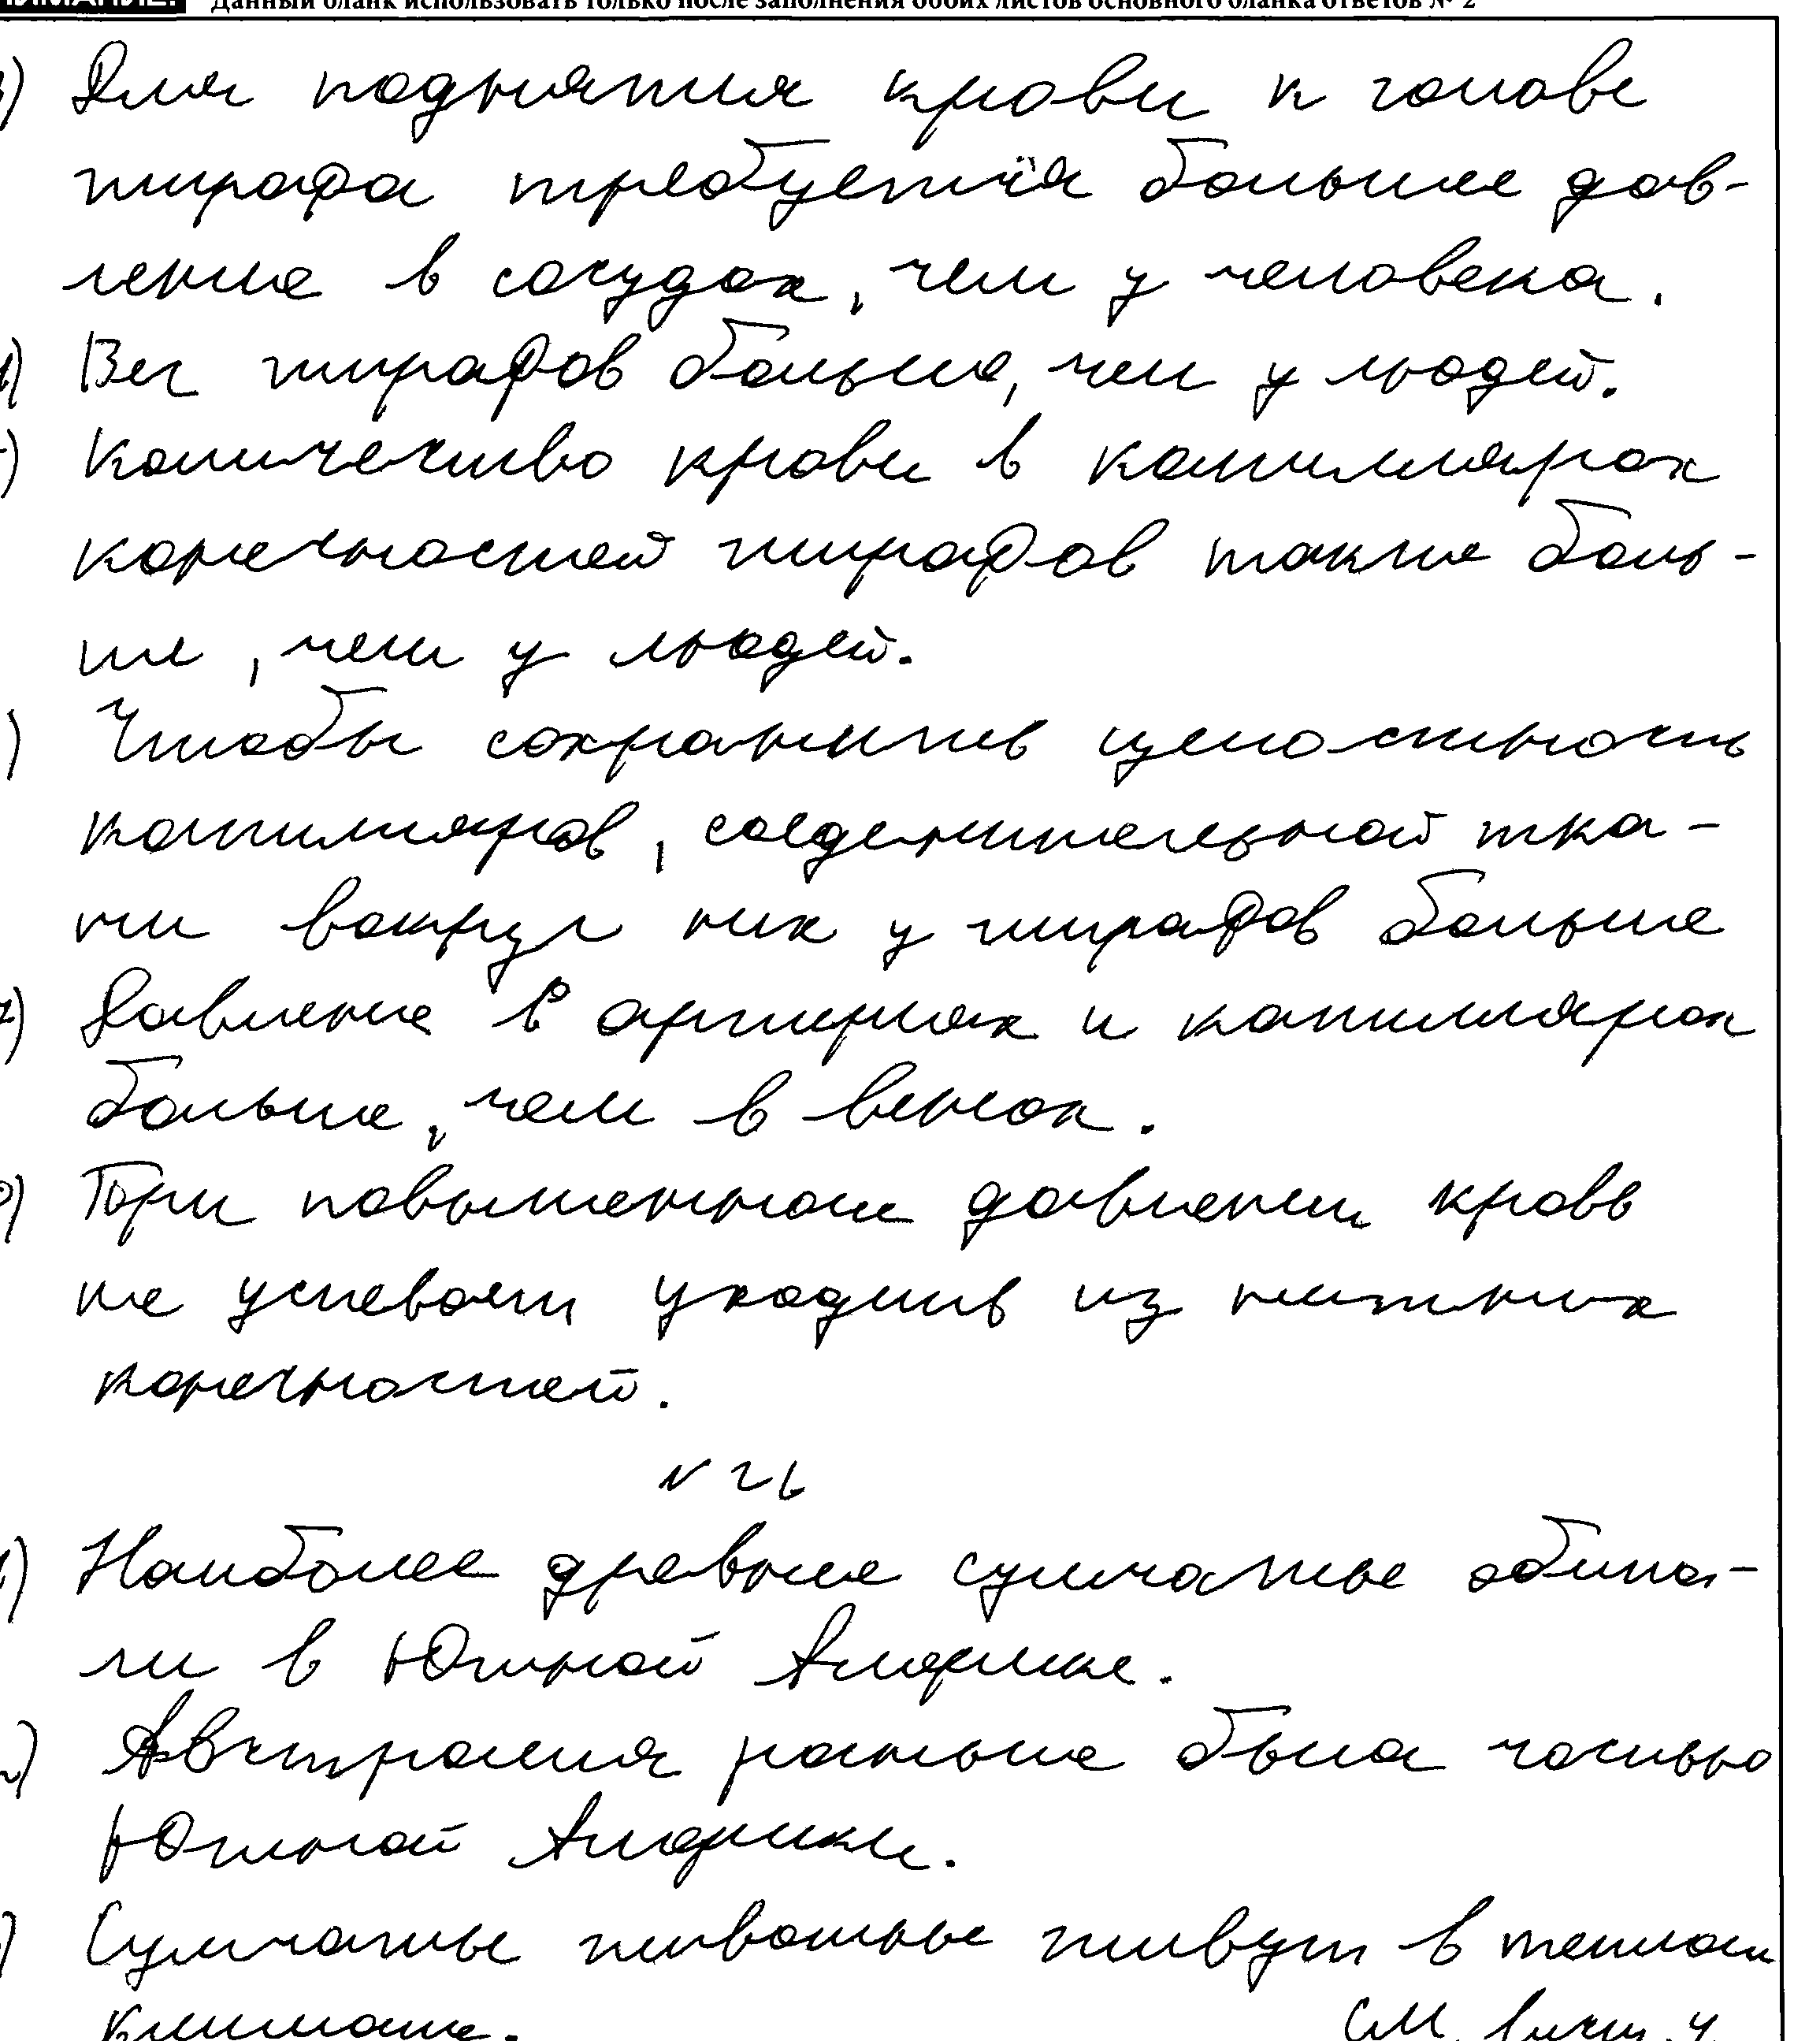 Данный бланк использовать только после заполнения обоих листов основного бланка ответов № 2
3) Для поднятия крови к голове
жирафа требуется больше дав-
ление в сосудах, чем у человека.
4) Вес жирафов больше, чем у людей.
5) Количество крови в капиллярах
конечностей жирафов также боль-
ше, чем у людей.
) Чтобы сохранить целостность
капилляров, соеденительной тка-
ни вокруг них у жирафов больше
7) Давление в артериях и капиллярах
больше, чем в венах.
8) При повышенном давлении кровь
не успевает уходить из нижних
конечностей.
N 26
1) Наиболее древние сумчатые обита-
ли в Южной Америке.
2) Австралия раньше была частью
Южной Америки.
) Сумчатые животные живут в теплом
климате.
См. лист 4